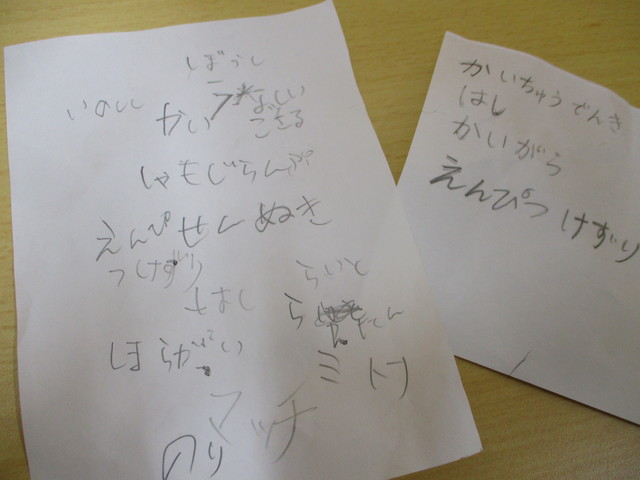 ぼうし
いのしし
かい
ござる
しゃもじ らんぷ
えんぴ せんぬき
つけずり
らいと
はし
ほらがい
ミトン
マッチ
のり
かいちゅうでんき
はし
かいがら
えんぴつけずり